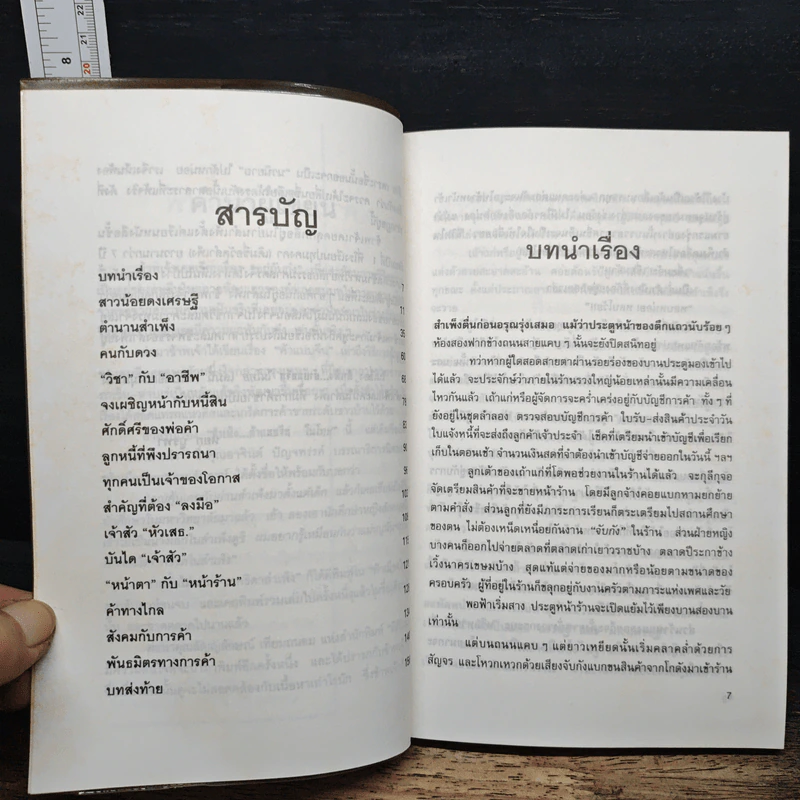 8
20
21
22
สารบัญ
บทนำเรื่อง 7
สาวน้อยดงเศรษฐี 11
ตำนานสำเพ็ง 35
คนกับดวง 60
“วิชา” กับ “อาชีพ” 68
จงเผชิญหน้ากับหนี้สิน 78
ศักดิ์ศรีของพ่อค้า 83
ลูกหนี้ที่พึงปรารถนา 90
ทุกคนเป็นเจ้าของโอกาส 96
สำคัญที่ต้อง “ลงมือ”
เจ้าสัว “หัวเสธ.”
บันได “เจ้าสัว”
“หน้าตา” กับ “หน้าร้าน”
ค้าทางไกล
สังคมกับการค้า
พันธมิตรทางการค้า
บทส่งท้าย
บทนำเรื่อง
สำเพ็งตื่นก่อนอรุณรุ่งเสมอ แม้ว่าประตูหน้าของตึกแถวนับร้อย ๆ
ห้องสองฟากข้างถนนสายแคบ ๆ นั้นจะยังปิดสนิทอยู่
ทว่าหากผู้ใดสอดสายตาผ่านรอยร่องของบานประตูมองเข้าไป
ได้แล้ว จะประจักษ์ว่าภายในร้านรวงใหญ่น้อยเหล่านั้นมีความเคลื่อน
ไหวกันแล้ว เถ้าแก่หรือผู้จัดการจะคร่ำเคร่งอยู่กับบัญชีการค้า ทั้ง ๆ ที่
ยังอยู่ในชุดลำลอง ตรวจสอบบัญชีการค้า ใบรับ-ส่งสินค้าประจำวัน
ใบแจ้งหนี้ที่จะส่งถึงลูกค้าเจ้าประจำ เช็คที่เตรียมนำเข้าบัญชีเพื่อเรียก
เก็บในตอนเช้า จำนวนเงินสดที่จำต้องนำเข้าบัญชีจ่ายออกในวันนี้ ฯลฯ
ลูกเต้าของเถ้าแก่ที่โตพอช่วยงานในร้านได้แล้ว จะกุลีกุจอ
จัดเตรียมสินค้าที่จะขายหน้าร้าน โดยมีลูกจ้างคอยแบกหามยกย้าย
ตามคำสั่ง ส่วนลูกที่ยังมีภาระการเรียนก็ตระเตรียมไปสถานศึกษา
ของตน ไม่ต้องเหน็ดเหนื่อยกับงาน “จับกัง” ในร้าน ส่วนฝ่ายหญิง
บางคนก็ออกไปจ่ายตลาดที่ตลาดเก่าเยาวราชบ้าง ตลาดปีระกาข้าง
เวิ้งนาครเขษมบ้าง สุดแท้แต่จ่ายของมากหรือน้อยตามขนาดของ
ครอบครัว ผู้ที่อยู่ในร้านก็ขลุกอยู่กับงานครัวตามภาระแห่งเพศและวัย
พอฟ้าเริ่มสาง ประตูหน้าร้านจะเปิดแย้มไว้เพียงบานสองบาน
เท่านั้น
แต่บนถนนแคบ ๆ แต่ยาวเหยียดนั้นเริ่มคลาคล่ำด้วยการ
สัญจร และโหวกเหวกด้วยเสียงจับกังแบกขนสินค้าจากโกดังมาเข้าร้าน
7